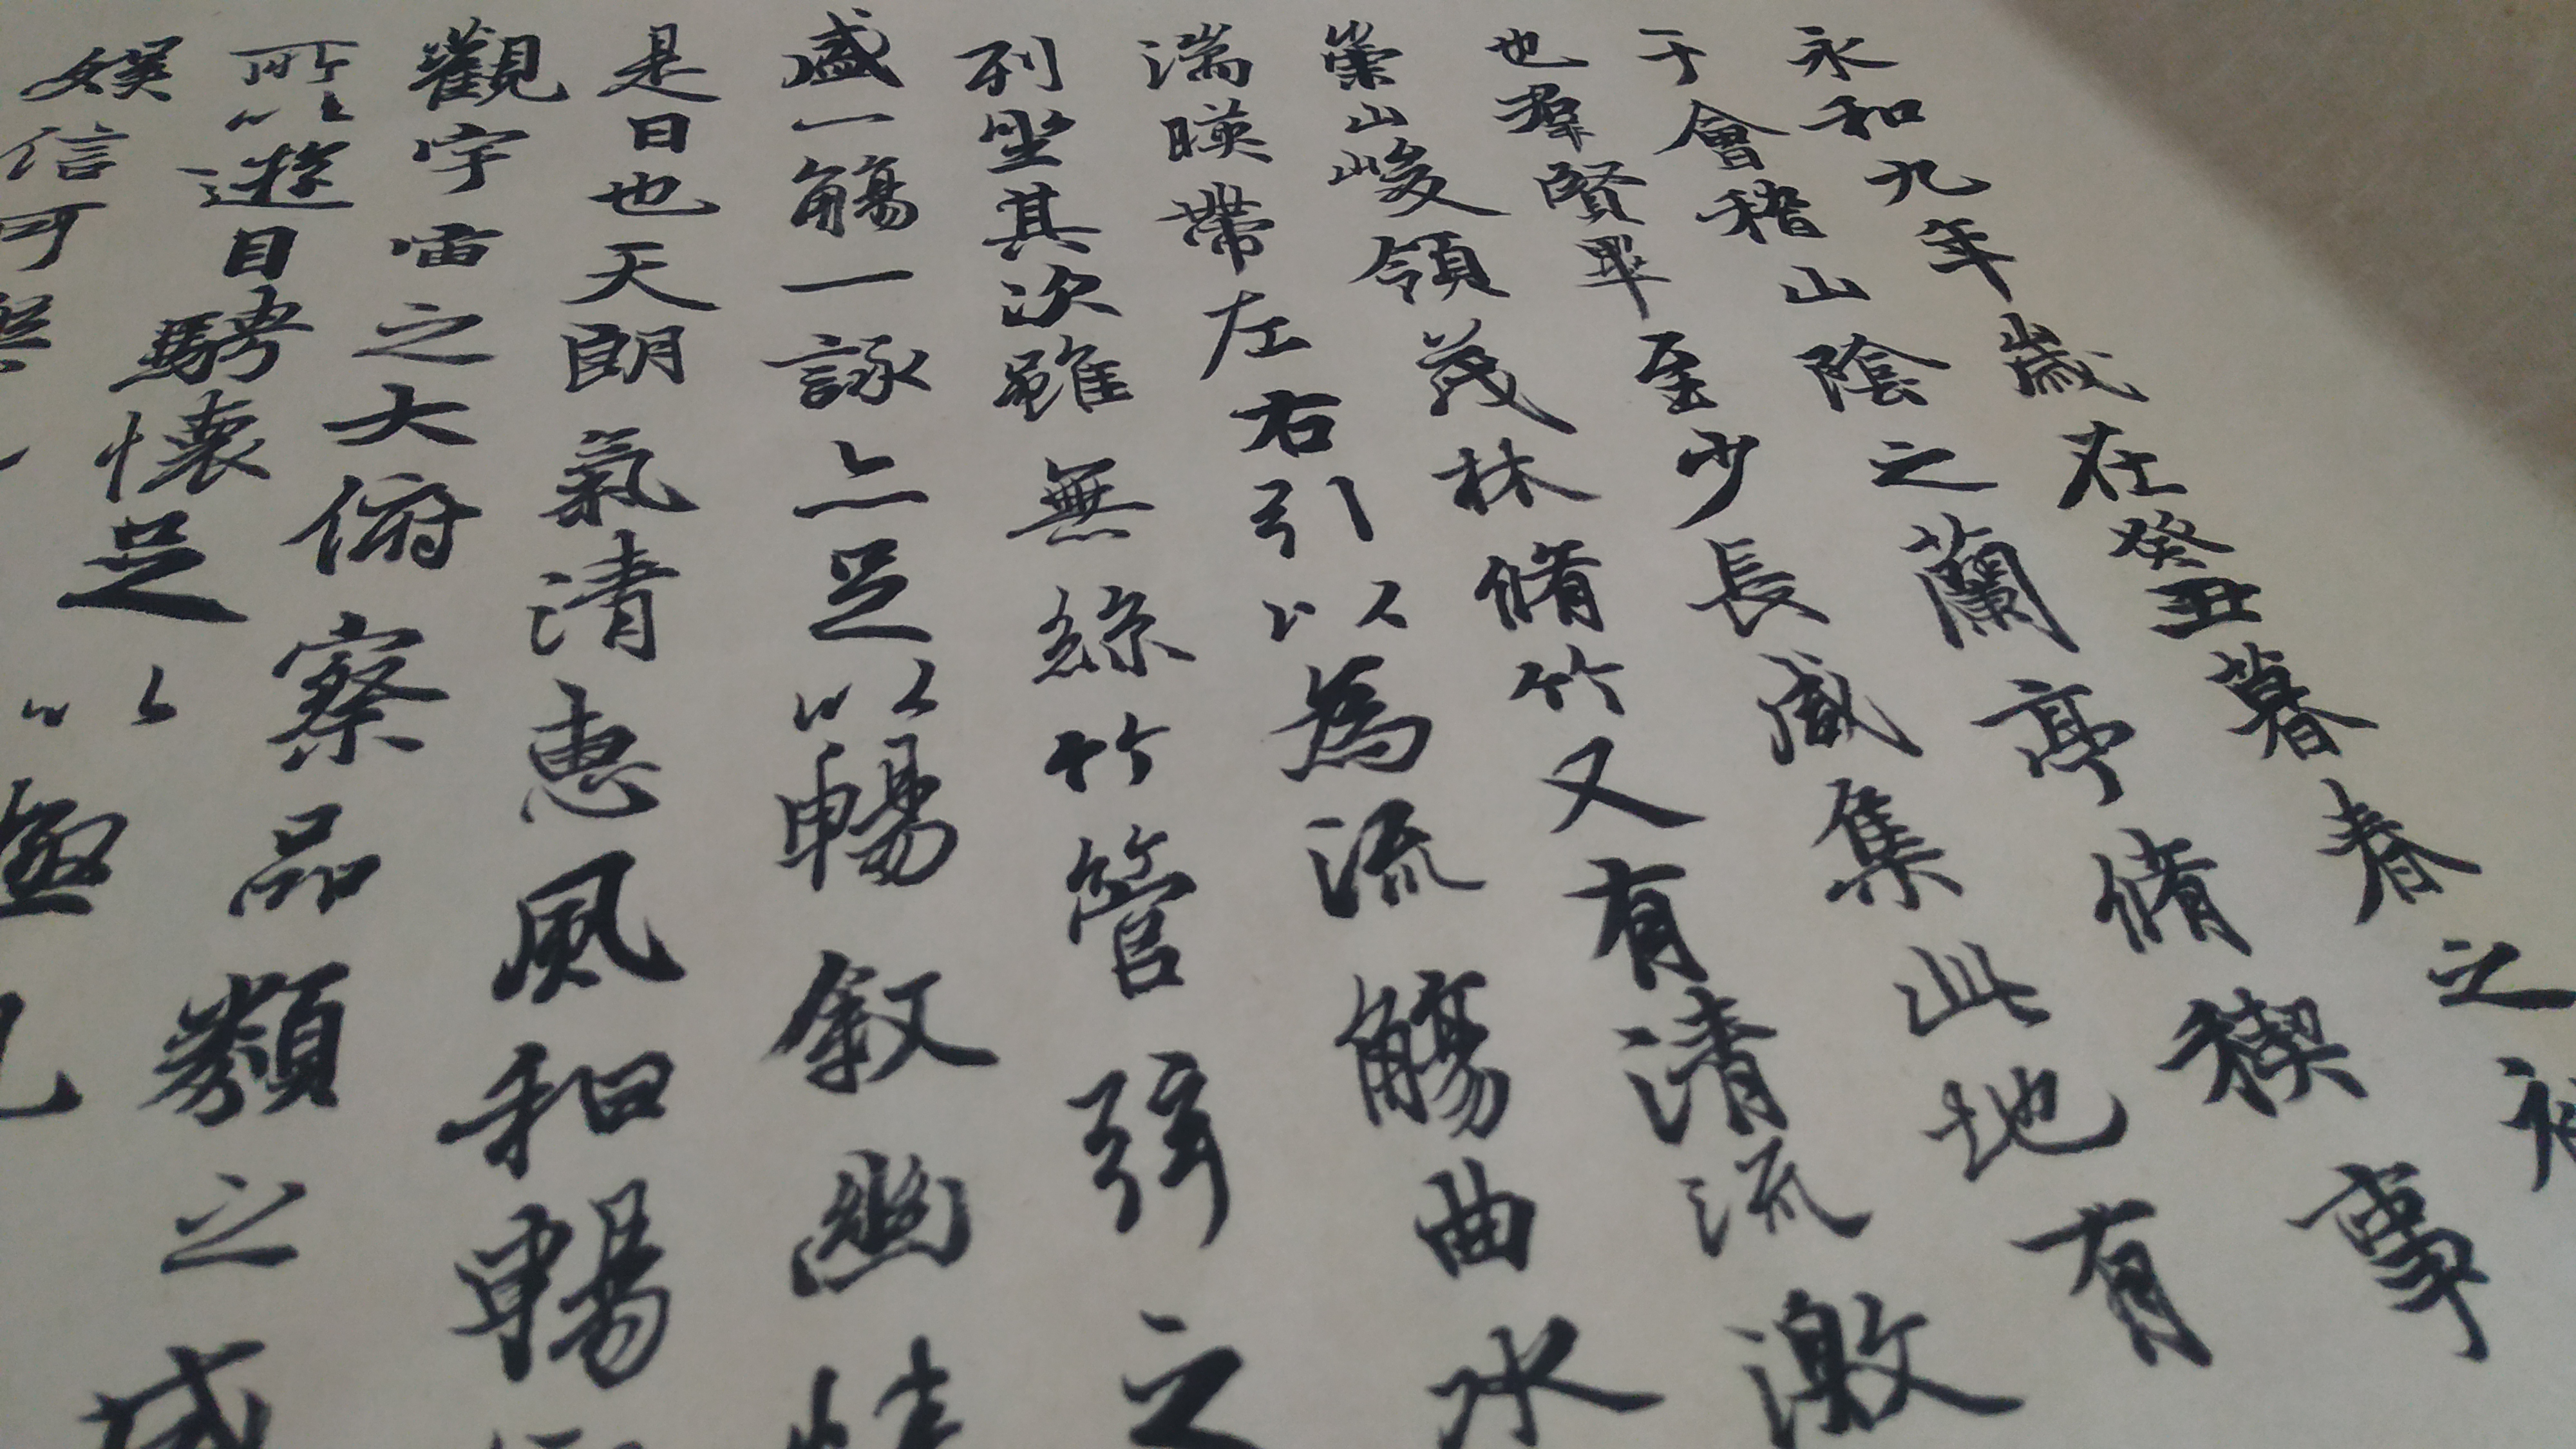 永和九年歲在癸丑暮春之
于會稽山陰之蘭亭脩禊事
也羣賢畢至少長咸集此地有
崇山峻領茂林脩竹又有清流激
湍暎帶左右引以為流觴曲水
列坐其次雖無絲竹管弦之
盛一觴一詠亦足以暢敘幽情
是日也天朗氣清惠風和暢
觀宇宙之大俯察品類之盛
所以遊目騁懷足以極
娛信可樂